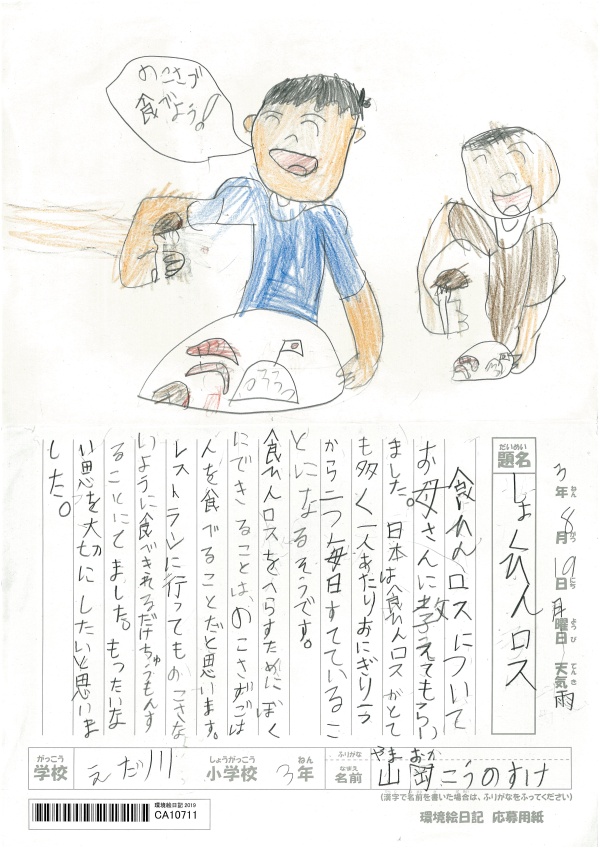 のこさず
食べよう!
3年ねん 8月がつ 19日にち 月曜日ようび 天気てんき 雨
だいめい
題名
しょくひんロス
食ひんロスについて
お母さんに教えてもらい
ました。日本は食ひんロスがとて
も多く一人あたりおにぎり一つ
から二つ毎日すてているこ
とになるそうです。
食ひんロスをへらすためにぼく
にできることは、のこさずごは
んを食べることだと思います。
レストランに行ってものこさな
いように食べきれるだけちゅうもんす
ることにしました。もったいな
い思を大切にしたいと思いま
した。
がっこう 学校 えだ川 しょうがっこう 小学校 3 ねん 年
ふりがな やま おか
なまえ 名前 山岡こうのすけ
(漢字で名前を書いた場合は、ふりがなをふってください)
環境絵日記 2019
CA10711
環境絵日記 応募用紙